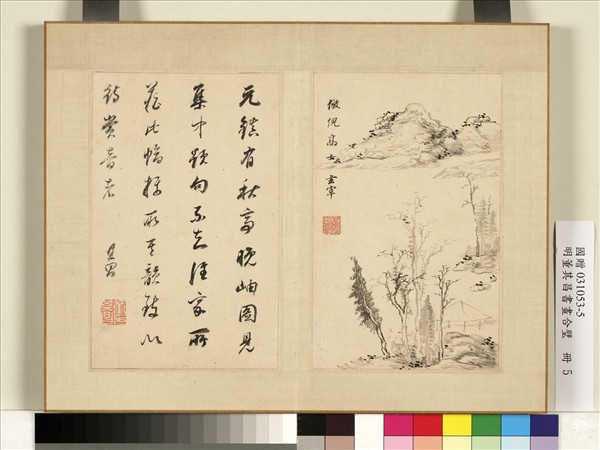 倣倪高士 玄宰
元鎮有秋亭晚岫圖見
集中題句不知誰家所
藏此幅擬其韻致以
待賞音者 其昌
國贈 031053-5
明董其昌書畫合璧 冊 5